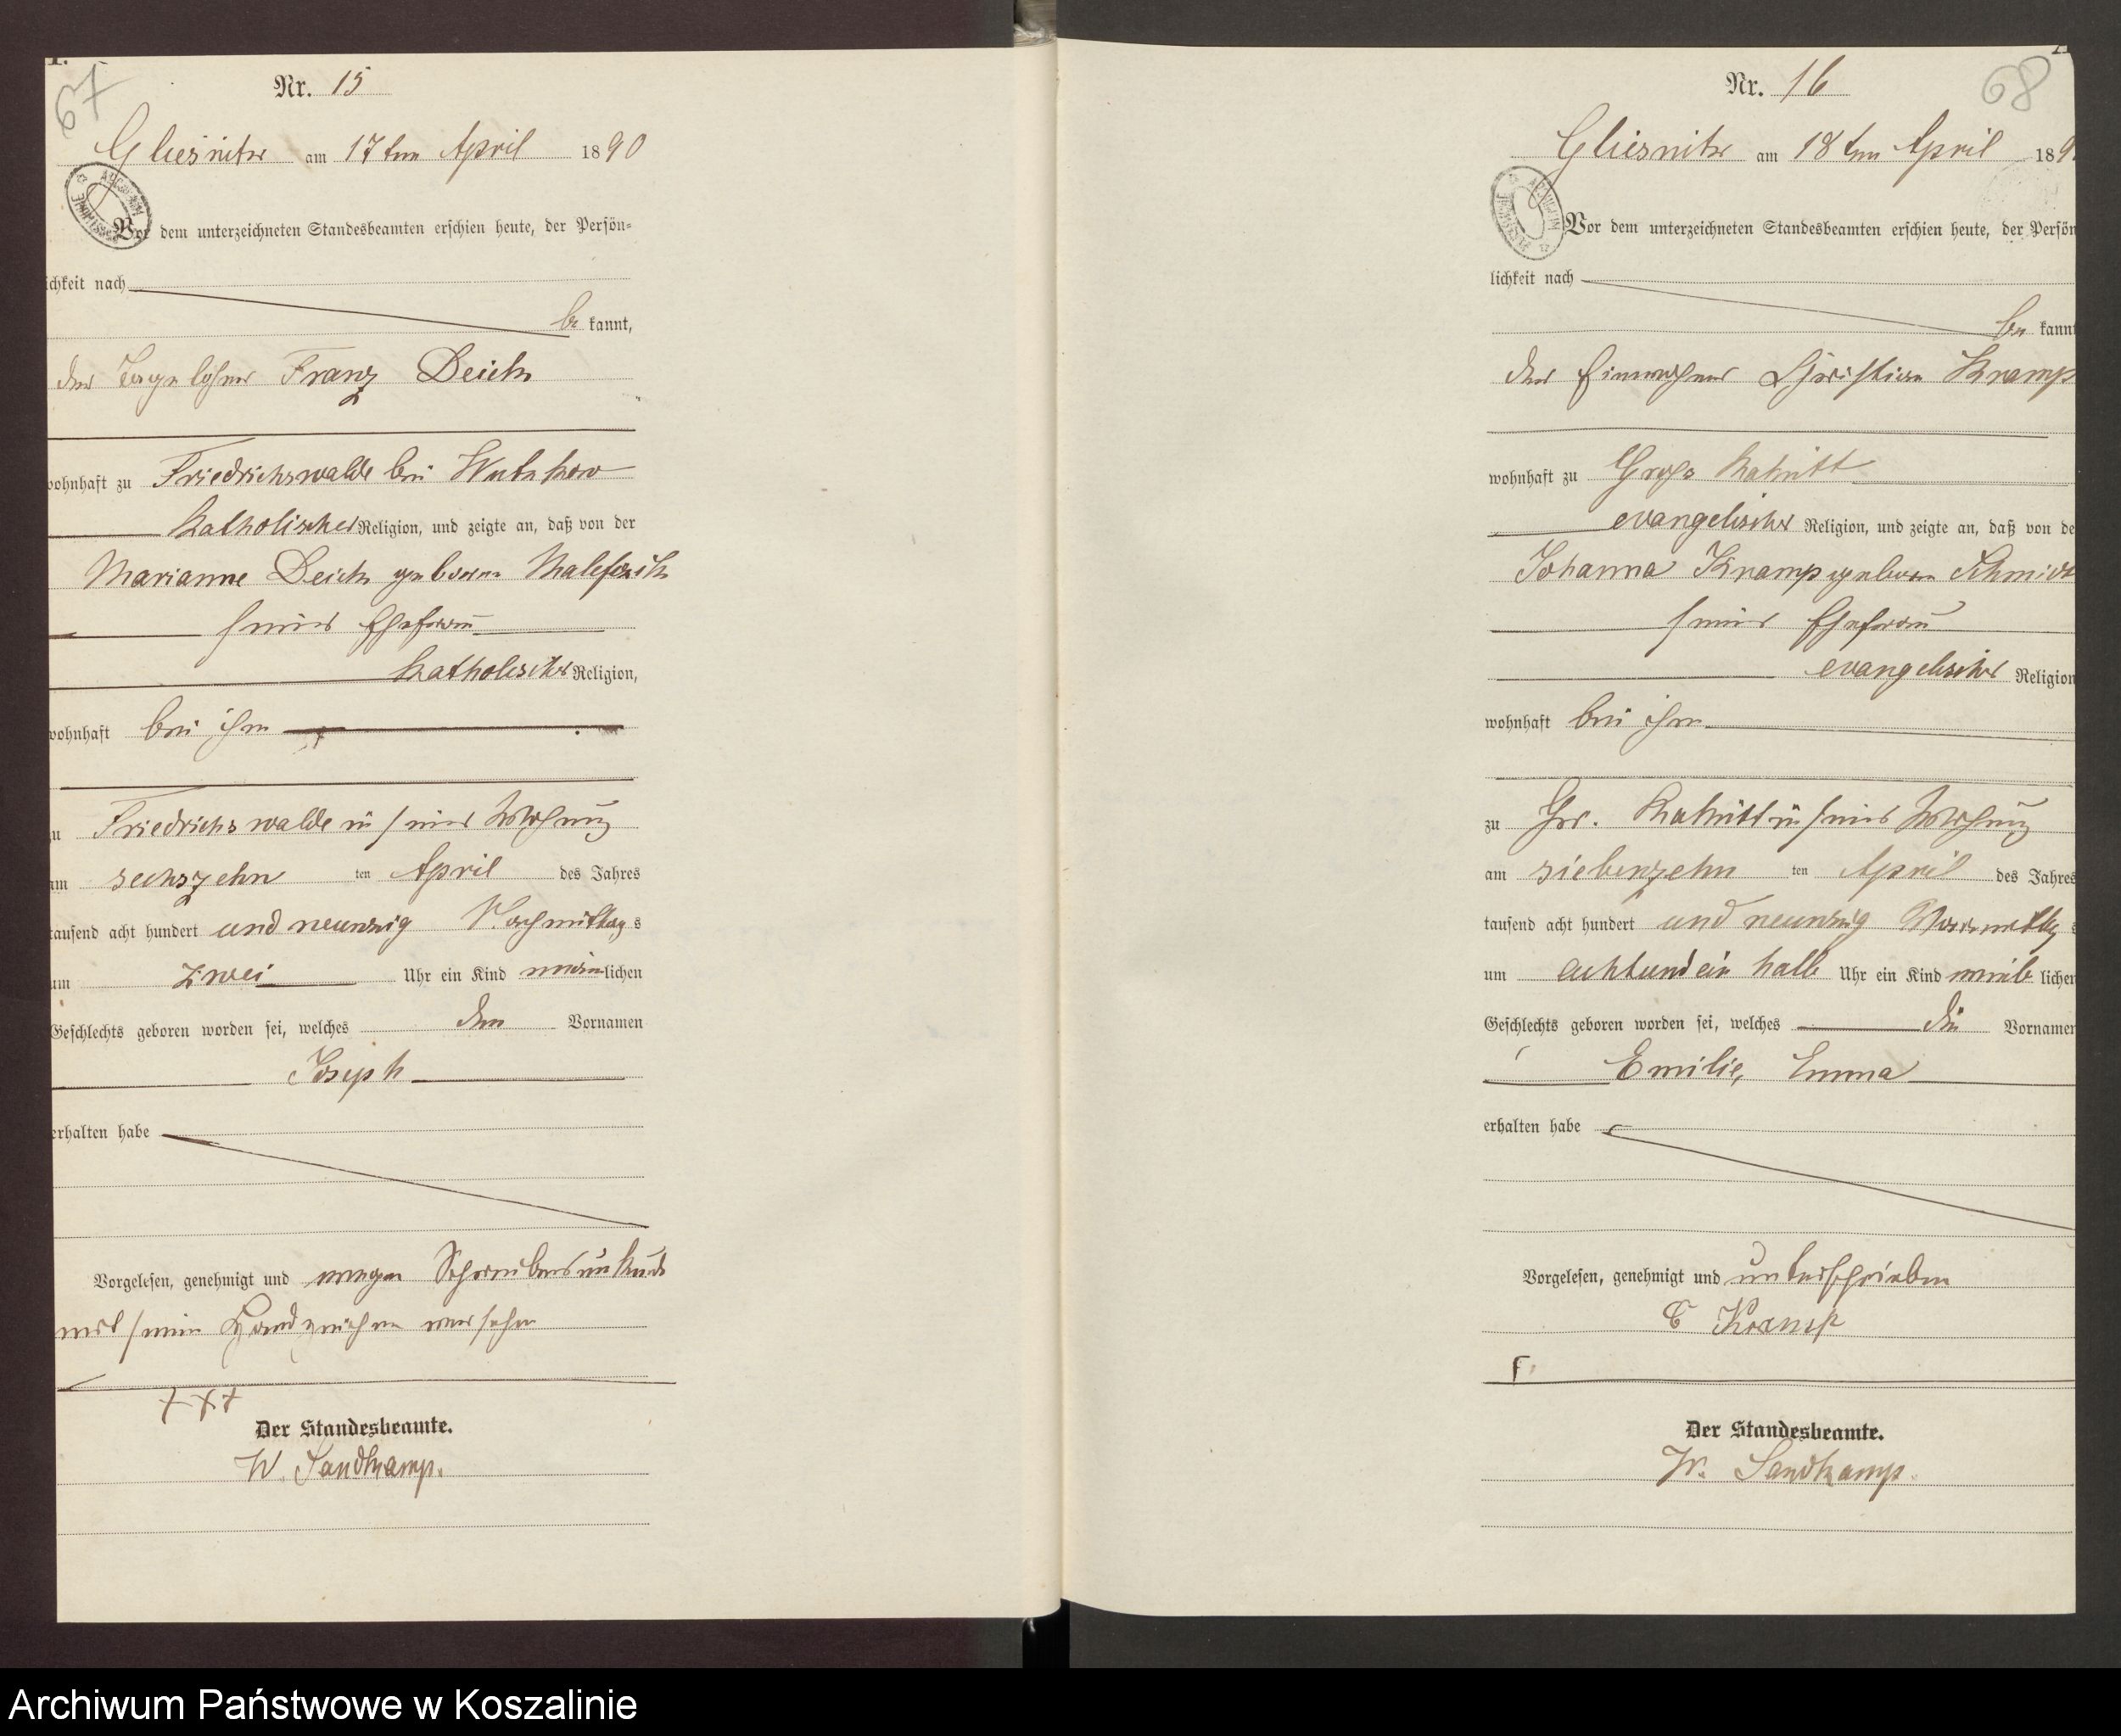 67
Nr. 15
Gliesnitz am 17ten April 1890
Vor dem unterzeichneten Standesbeamten erschien heute, der Persön-
lichkeit nach
be kannt,
der Tagelöhner Franz Deich
wohnhaft zu Friedrichswalde bei
katholischer Religion, und zeigte an, daß von der
Marianne Deich geborene
seiner Ehefrau
katholischer Religion,
wohnhaft bei ihm
zu Friedrichswalde in seiner Wohnung
am sechszehn ten April des Jahres
tausend acht hundert und neunzig Nachmittags
um zwei Uhr ein Kind männlichen
Geschlechts geboren worden sei, welches den Vornamen
Joseph
erhalten habe
Vorgelesen, genehmigt und wegen Schreibensunkunde
mit seinem Handzeichen versehen
+++
Der Standesbeamte.
W. Sandkamp.
68
Nr. 16
Gliesnitz am 18ten April 189
Vor dem unterzeichneten Standesbeamten erschien heute, der Persön
lichkeit nach
be kannt
der Einwohner Christian Kramp
wohnhaft zu Gross
evangelischer Religion, und zeigte an, daß von de
Johanna Kramp geborene Schmidt
seiner Ehefrau
evangelischer Religion
wohnhaft bei ihm
zu Gr. in seiner Wohnung
am siebenzehn ten April des Jahres
tausend acht hundert und neunzig Vormittag s
um achtundein halb Uhr ein Kind weib lichen
Geschlechts geboren worden sei, welches die Vornamen
Emilie, Emma
erhalten habe
Vorgelesen, genehmigt und unterschrieben
C Kramp
Der Standesbeamte.
W. Sandkamp.
Archiwum Państwowe w Koszalinie